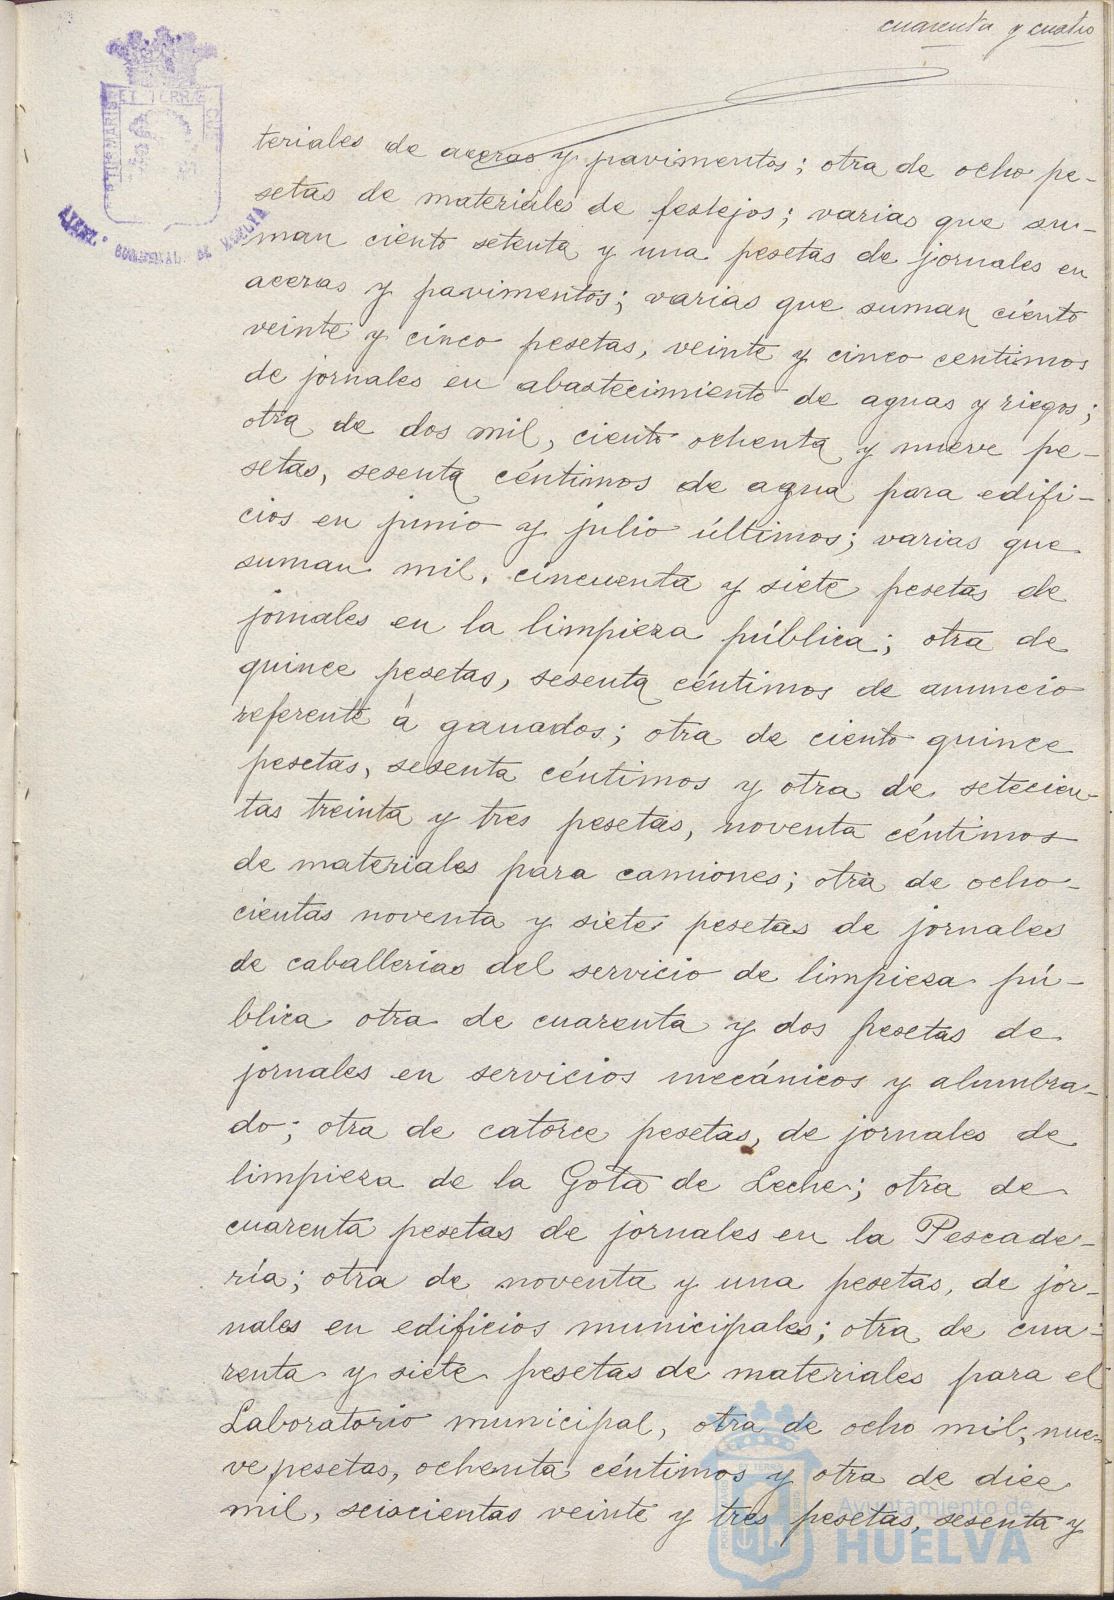 cuarenta y cuatro
teriales de aceras y pavimentos; otra de ocho pe-
setas de materiales de festejos; varias que su-
man ciento setenta y una pesetas de jornales en
aceras y pavimentos; varias que suman ciento
veinte y cinco pesetas, veinte y cinco centimos
de jornales en abastecimiento de aguas y riegos;
otra de dos mil, ciento ochenta y nueve pe-
setas, sesenta céntimos de agua para edifi-
cios en junio y julio últimos; varias que
suman mil, cincuenta y siete pesetas de
jornales en la limpieza pública; otra de
quince pesetas, sesenta céntimos de anuncio
referente á ganados; otra de ciento quince
pesetas, sesenta céntimos y otra de setecien-
tas treinta y tres pesetas, noventa céntimos
de materiales para camiones; otra de ocho-
cientas noventa y siete pesetas de jornales
de caballerias del servicio de limpieza pú-
blica otra de cuarenta y dos pesetas de
jornales en servicios mecánicos y alumbra-
do; otra de catorce pesetas, de jornales de
limpieza de la Gota de Leche; otra de
cuarenta pesetas de jornales en la Pescade-
ría; otra de noventa y una pesetas, de jor-
nales en edificios municipales; otra de cua-
renta y siete pesetas de materiales para el
Laboratorio municipal, otra de ocho mil, nue-
ve pesetas, ochenta céntimos y otra de diez
mil, seiscientas veinte y tres pesetas, sesenta y
Ayuntamiento de
HUELVA